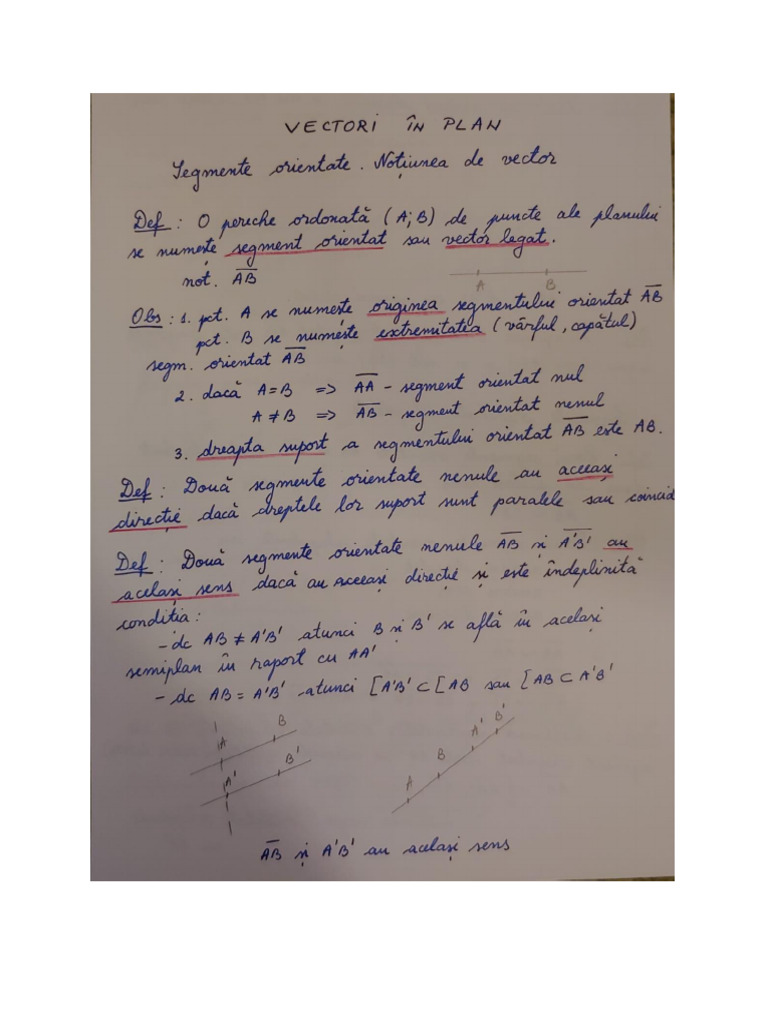 VECTORI ÎN PLAN
Segmente orientate. Noțiunea de vector
Def : O pereche ordonată (A; B) de puncte ale planului
se numește segment orientat sau vector legat.
not. A̅B̅
A B
Obs : 1. pct. A se numește originea segmentului orientat A̅B̅
pct. B se numește extremitatea (vârful, capătul)
segm. orientat A̅B̅
2. dacă A=B => A̅A̅ - segment orientat nul
A ≠ B => A̅B̅ - segment orientat nenul
3. dreapta suport a segmentului orientat A̅B̅ este AB.
Def : Două segmente orientate nenule au aceeași
direcție dacă dreptele lor suport sunt paralele sau coincid
Def : Două segmente orientate nenule A̅B̅ și A̅'B̅' au
același sens dacă au aceeași direcție și este îndeplinită
condiția:
- dc AB ≠ A'B' atunci B și B' se află în același
semiplan în raport cu AA'
- dc AB = A'B' atunci [A'B' ⊂ [AB sau [AB ⊂ A'B'
A B
A' B'
A B A' B'
A̅B̅ și A'B' au același sens